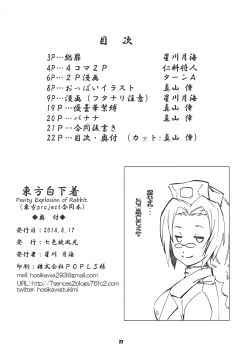 目 次
3P…総扉 星川月海
4P…4コマ2P 仁科将人
6P…2P漫画 ターンA
8P…おっぱいイラスト 真山 倖
9P…漫画(フタナリ注意) 星川月海
19P…優曇華緊縛 真山 倖
20P…バナナ 真山 倖
21P…合同抜書き
22P…目次・奥付 (カット:真山 倖)
東方白下着
Panty Explosion of Rabbit.
(東方project合同本)
◆奥 付◆
発行日:2014,8,17
発行:七色旋風児
発行者:星川 月海
印刷:株式会社POPLS様
URL:http://7sences2blogs76fc2.com
twitter:hosikawatukimi
22